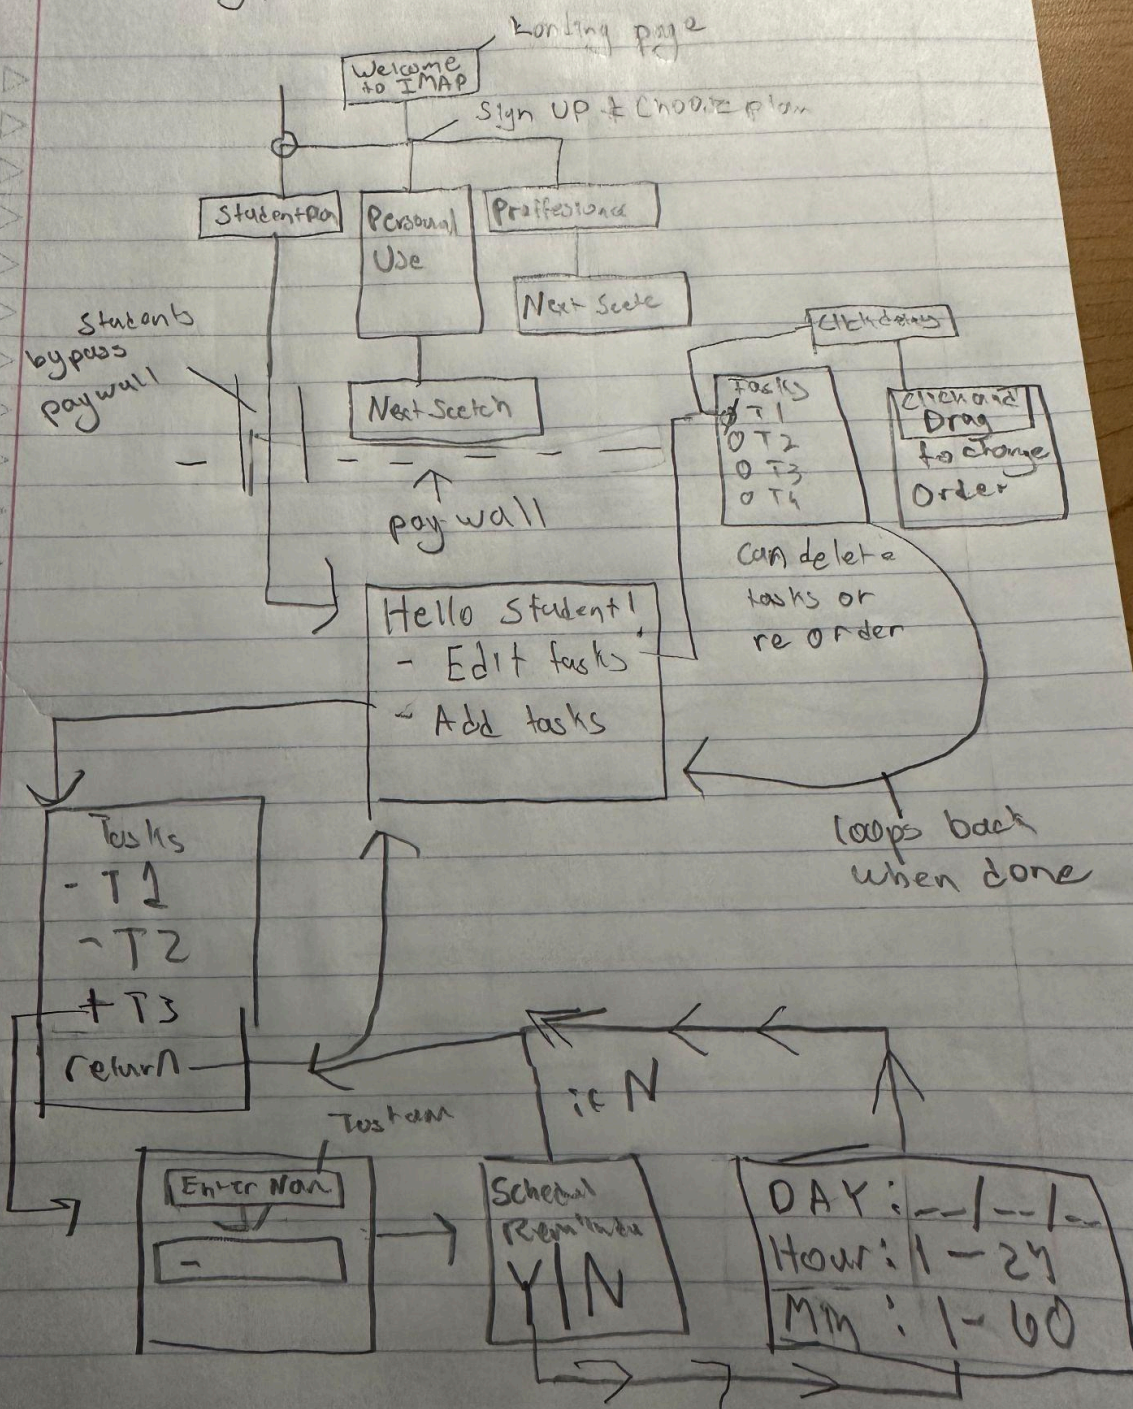 Landing page
Welcome
to IMAP
Sign UP & Choose plan
Student Plan
Personal
Use
Proffesional
Next Scetc
Students
bypass
paywall
Next Scetch
paywall
Tasks
T1
O T2
O T3
O T4
Click and
Drag
to change
Order
can delete
tasks or
re order
Hello Student!
- Edit tasks
- Add tasks
loops back
when done
Tasks
- T1
- T2
+ T3
return
if N
Enter Nam
-
Schedul
Y/N
DAY: __/__/__
Hour: 1-24
Min : 1-60